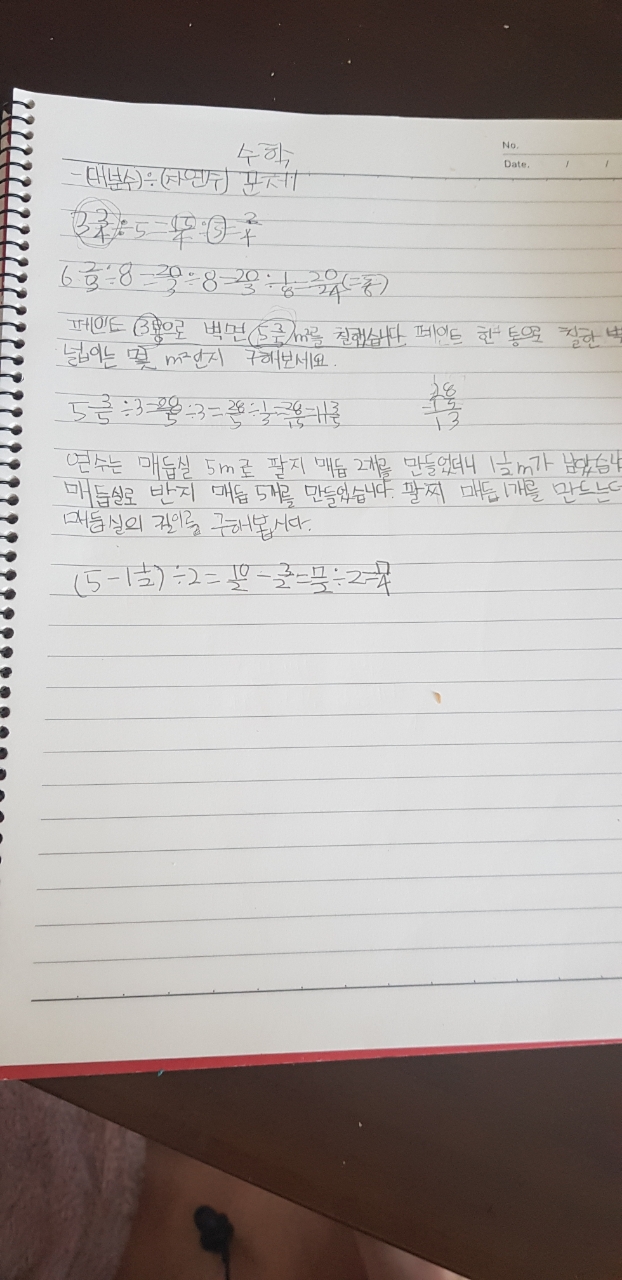 수학
No.
Date. / /
-(대분수)÷(자연수) 문제
3 3/4 ÷ 5 = 15/4 ÷ 5 = 3/4
6 2/3 ÷ 8 = 20/3 ÷ 8 = 20/3 ÷ 1/8 = 20/24 (= 5/6)
페인트 3통으로 벽면 5 3/5 m²를 칠했습니다. 페인트 한 통으로 칠한 벽
넓이는 몇 m²인지 구해보세요.
5 3/5 ÷ 3 = 28/5 ÷ 3 = 28/5 ÷ 1/3 = 28/15 = 1 13/15
28
15
13
연수는 매듭실 5m로 팔지 매듭 2개를 만들었더니 1 1/2 m가 남았습니
매듭실로 반지 매듭 5개를 만들었습니다. 팔찌 매듭 1개를 만드는데
매듭실의 길이를 구해봅시다.
(5 - 1 1/2) ÷ 2 = 10/2 - 3/2 = 7/2 ÷ 2 = 7/4